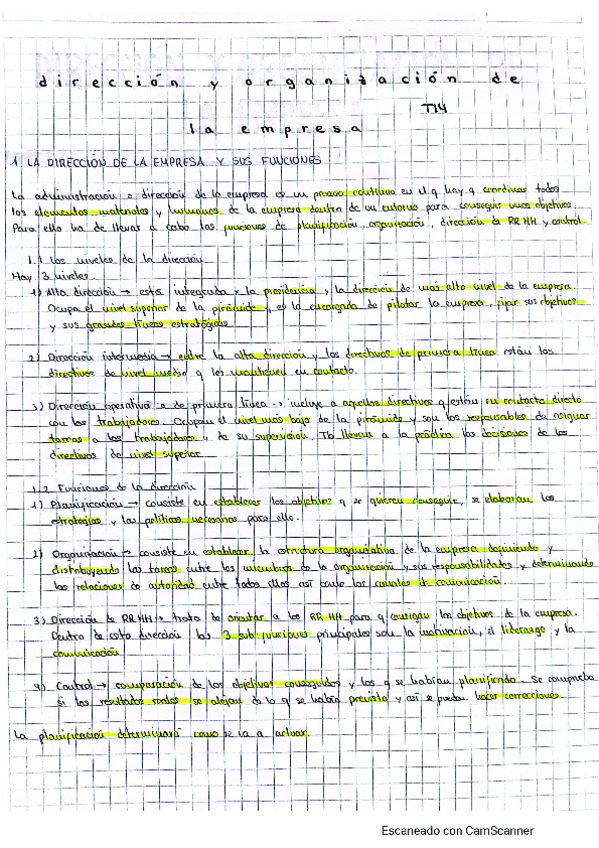 dirección y organización de
T14
la empresa
1. LA DIRECCIÓN DE LA EMPRESA Y SUS FUNCIONES
La administración o dirección de la empresa es un proceso continuo en el q hay q coordinar todos
los elementos materiales y humanos de la empresa dentro de un entorno para conseguir unos objetivos.
Para ello ha de llevar a cabo las funciones de planificación, organización, dirección de RRHH y control.
1.1 los niveles de la dirección
Hay 3 niveles
1) Alta dirección → esta integrada x la presidencia y la dirección de más alto nivel de la empresa.
Ocupa el nivel superior de la pirámide, es la encargada de pilotar la empresa, fijar sus objetivos
y sus grandes líneas estratégicas
2) Dirección intermedia → entre la alta dirección y los directivos de primera línea están los
directivos de nivel medio q les mantienen en contacto.
3) Dirección operativa o de primera línea → incluye a aquellos directivos q están en contacto directo
con los trabajadores. Ocupan el nivel más bajo de la pirámide y son los responsables de asignar
tareas a los trabajadores y de su supervisión. Tb llevan a la práctica las decisiones de los
directivos de nivel superior
1.2. Funciones de la dirección
1) Planificación → consiste en establecer los objetivos q se quieren conseguir, se elaboran las
estrategias y las políticas necesarias para ello.
2) Organización → consiste en establecer la estructura organizativa de la empresa definiendo y
distribuyendo las tareas entre los miembros de la organización y sus responsabilidades y determinando
las relaciones de autoridad entre todos ellos así como los canales de comunicación
3) Dirección de RRHH → trata de orientar a los RRHH para q consigan los objetivos de la empresa.
Dentro de esta dirección las 3 sub funciones principales son: la motivación, el liderazgo y la
comunicación
4) Control → comparación de los objetivos conseguidos y los q se habían planificado. Se comprueba
si los resultados reales se alejan de lo q se había previsto y así se puedan hacer correcciones.
La planificación determinará como se va a actuar.
Escaneado con CamScanner